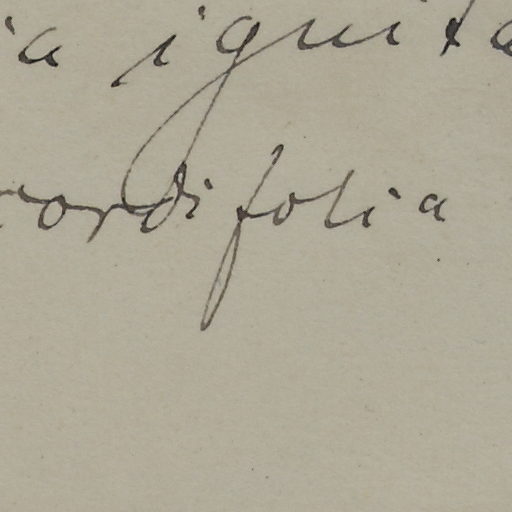 ia ignita
cordifolia